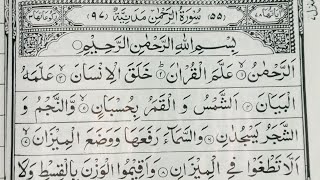 (٥٥) سُوْرَةُ الرَّحْمٰنِ مَدَنِيَّةٌ (٩٧)
بِسْمِ اللّٰهِ الرَّحْمٰنِ الرَّحِيْمِ
اَلرَّحْمٰنُ ۙ عَلَّمَ الْقُرْاٰنَ ؕ خَلَقَ الْاِنْسَانَ ۙ عَلَّمَهُ
الْبَيَانَ ۚ اَلشَّمْسُ وَ الْقَمَرُ بِحُسْبَانٍ ۙ وَّالنَّجْمُ وَ
الشَّجَرُ يَسْجُدٰنِ وَالسَّمَآءَ رَفَعَهَا وَوَضَعَ الْمِيْزَانَ ۙ
اَلَّا تَطْغَوْا فِي الْمِيْزَانِ وَاَقِيْمُوا الْوَزْنَ بِالْقِسْطِ وَلَا